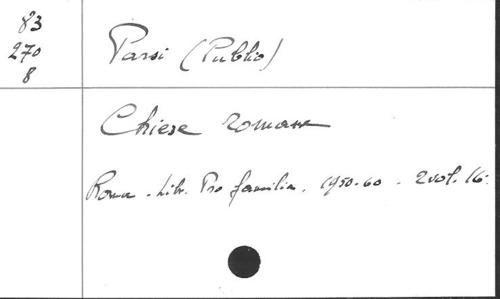 83
270
8
Parsi (Publio)
Chiese romane
Roma. Libr. Pro familia. 1950-60. 2 vol. 16.